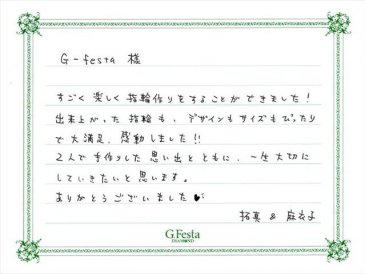 G-festa 様
すごく楽しく指輪作りをすることができました！
出来上がった指輪も、デザインもサイズもぴったり
で大満足、感動しました!!
2人で手作りした思い出とともに、一生大切に
していきたいと思います。
ありがとうございました♥
拓真 & 麻衣子
G.Festa
DIAMOND